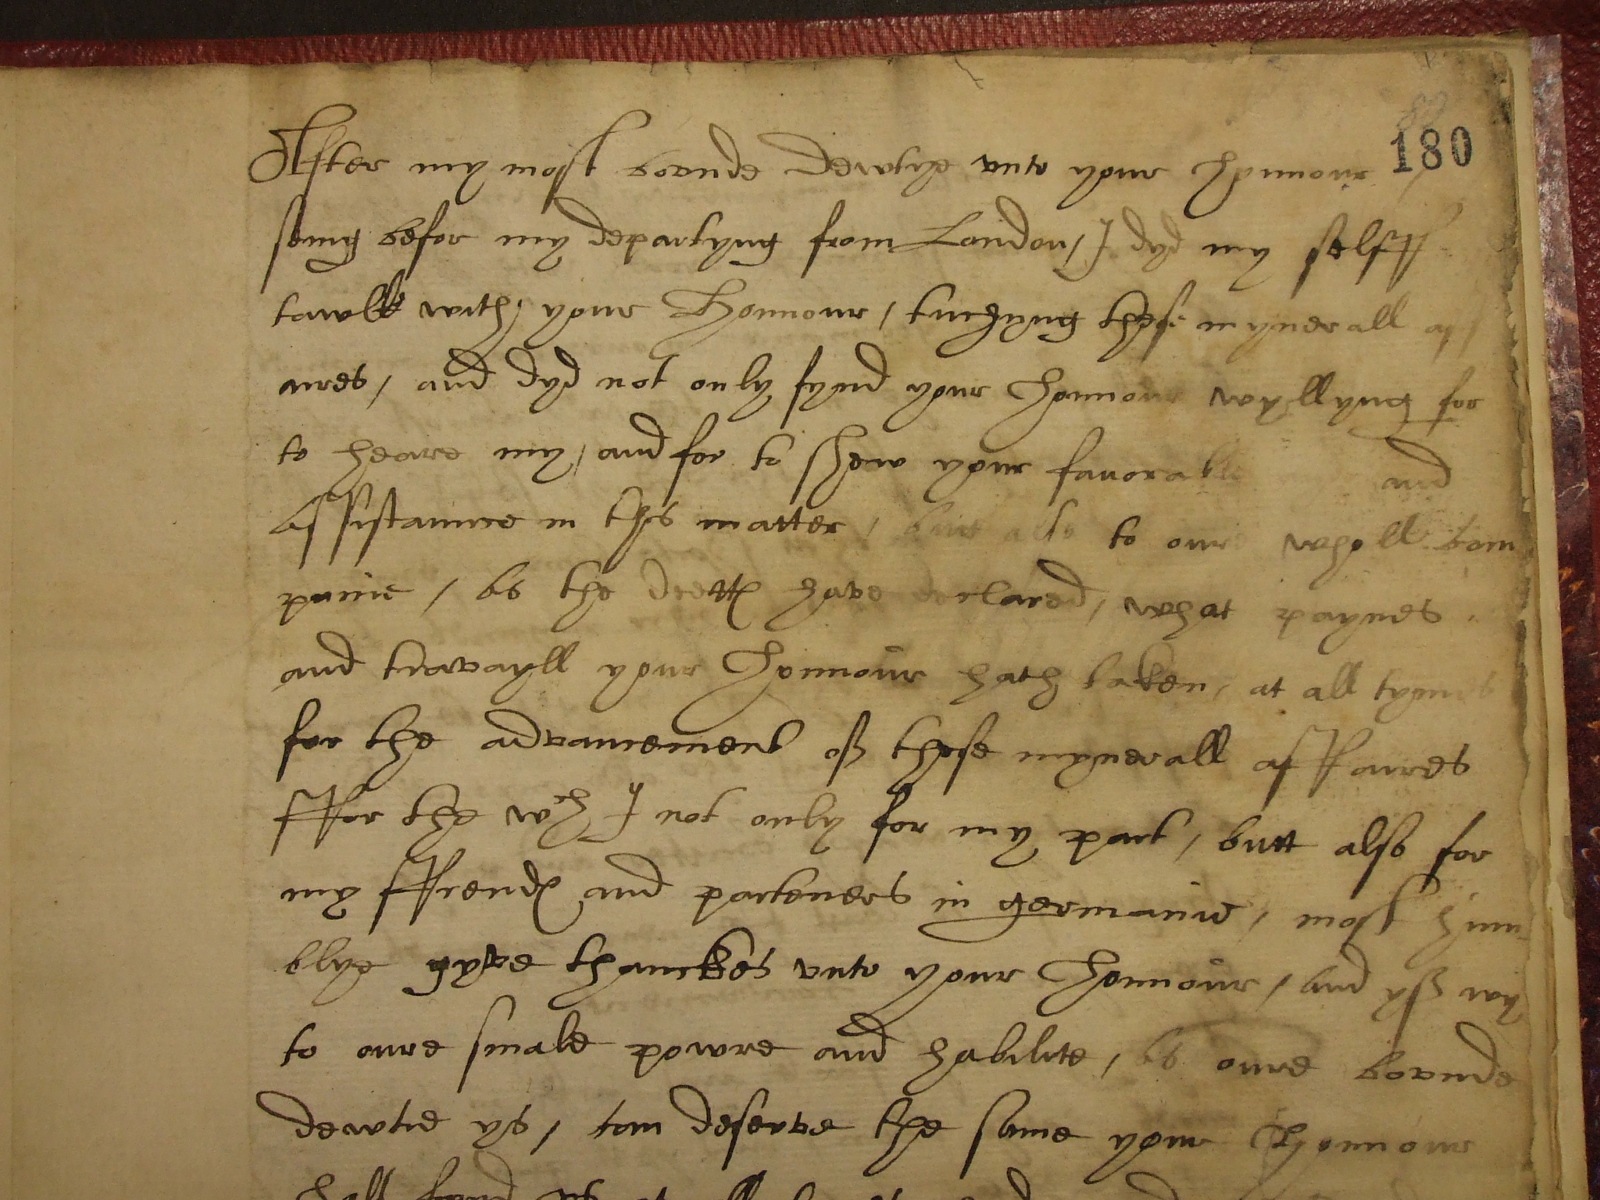 180
After my most bovnde dewtye vnto your Honnour
seing befor my departyng from London, I dyd my selff
tawlk with your Honnour, tuchyng these mynerall aff
aires, and dyd not only fynd your Honnour wyllyng for
to heare my, and for to shew your favorable and
assistannce in this matter, but also to our wholl com
panie, as the have declared, what paynes
and travayll your Honnour hath taken, at all tymes
for the advancement off these mynerall affaires
ffor the wch I not only for my part, butt also for
my ffrends and parteners in germanie, most hum
blye gyve thanckes vnto your Honnour, and yff wy
to oure smale powre and habilite, as oure bovnde
dewtie ys, can deserve the same your Honnour